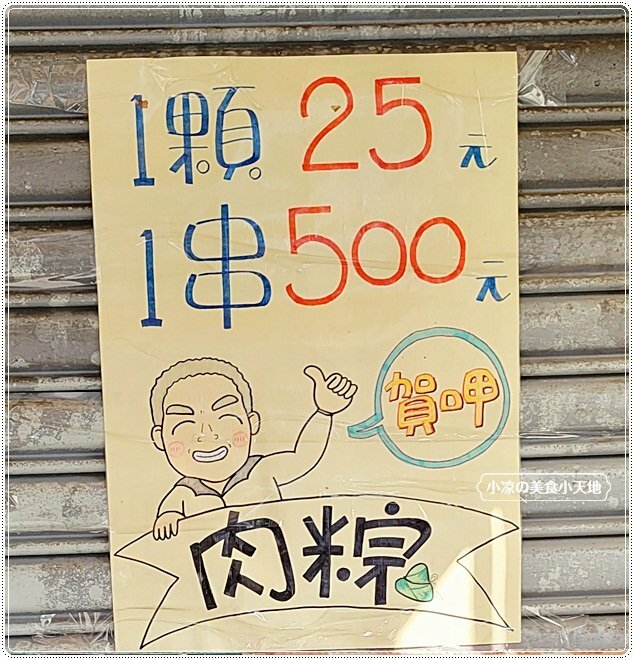 1顆 25元
1串500元
賀呷
小涼の美食小天地
肉粽